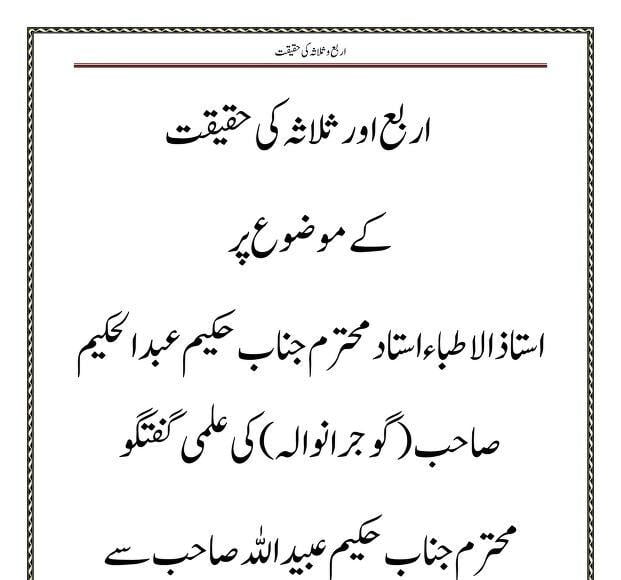 اربع و ثلاثہ کی حقیقت
اربع اور ثلاثہ کی حقیقت
کے موضوع پر
استاذ الاطباء استاد محترم جناب حکیم عبدالحکیم
صاحب (گوجرانوالہ) کی علمی گفتگو
محترم جناب حکیم عبید اللہ صاحب سے